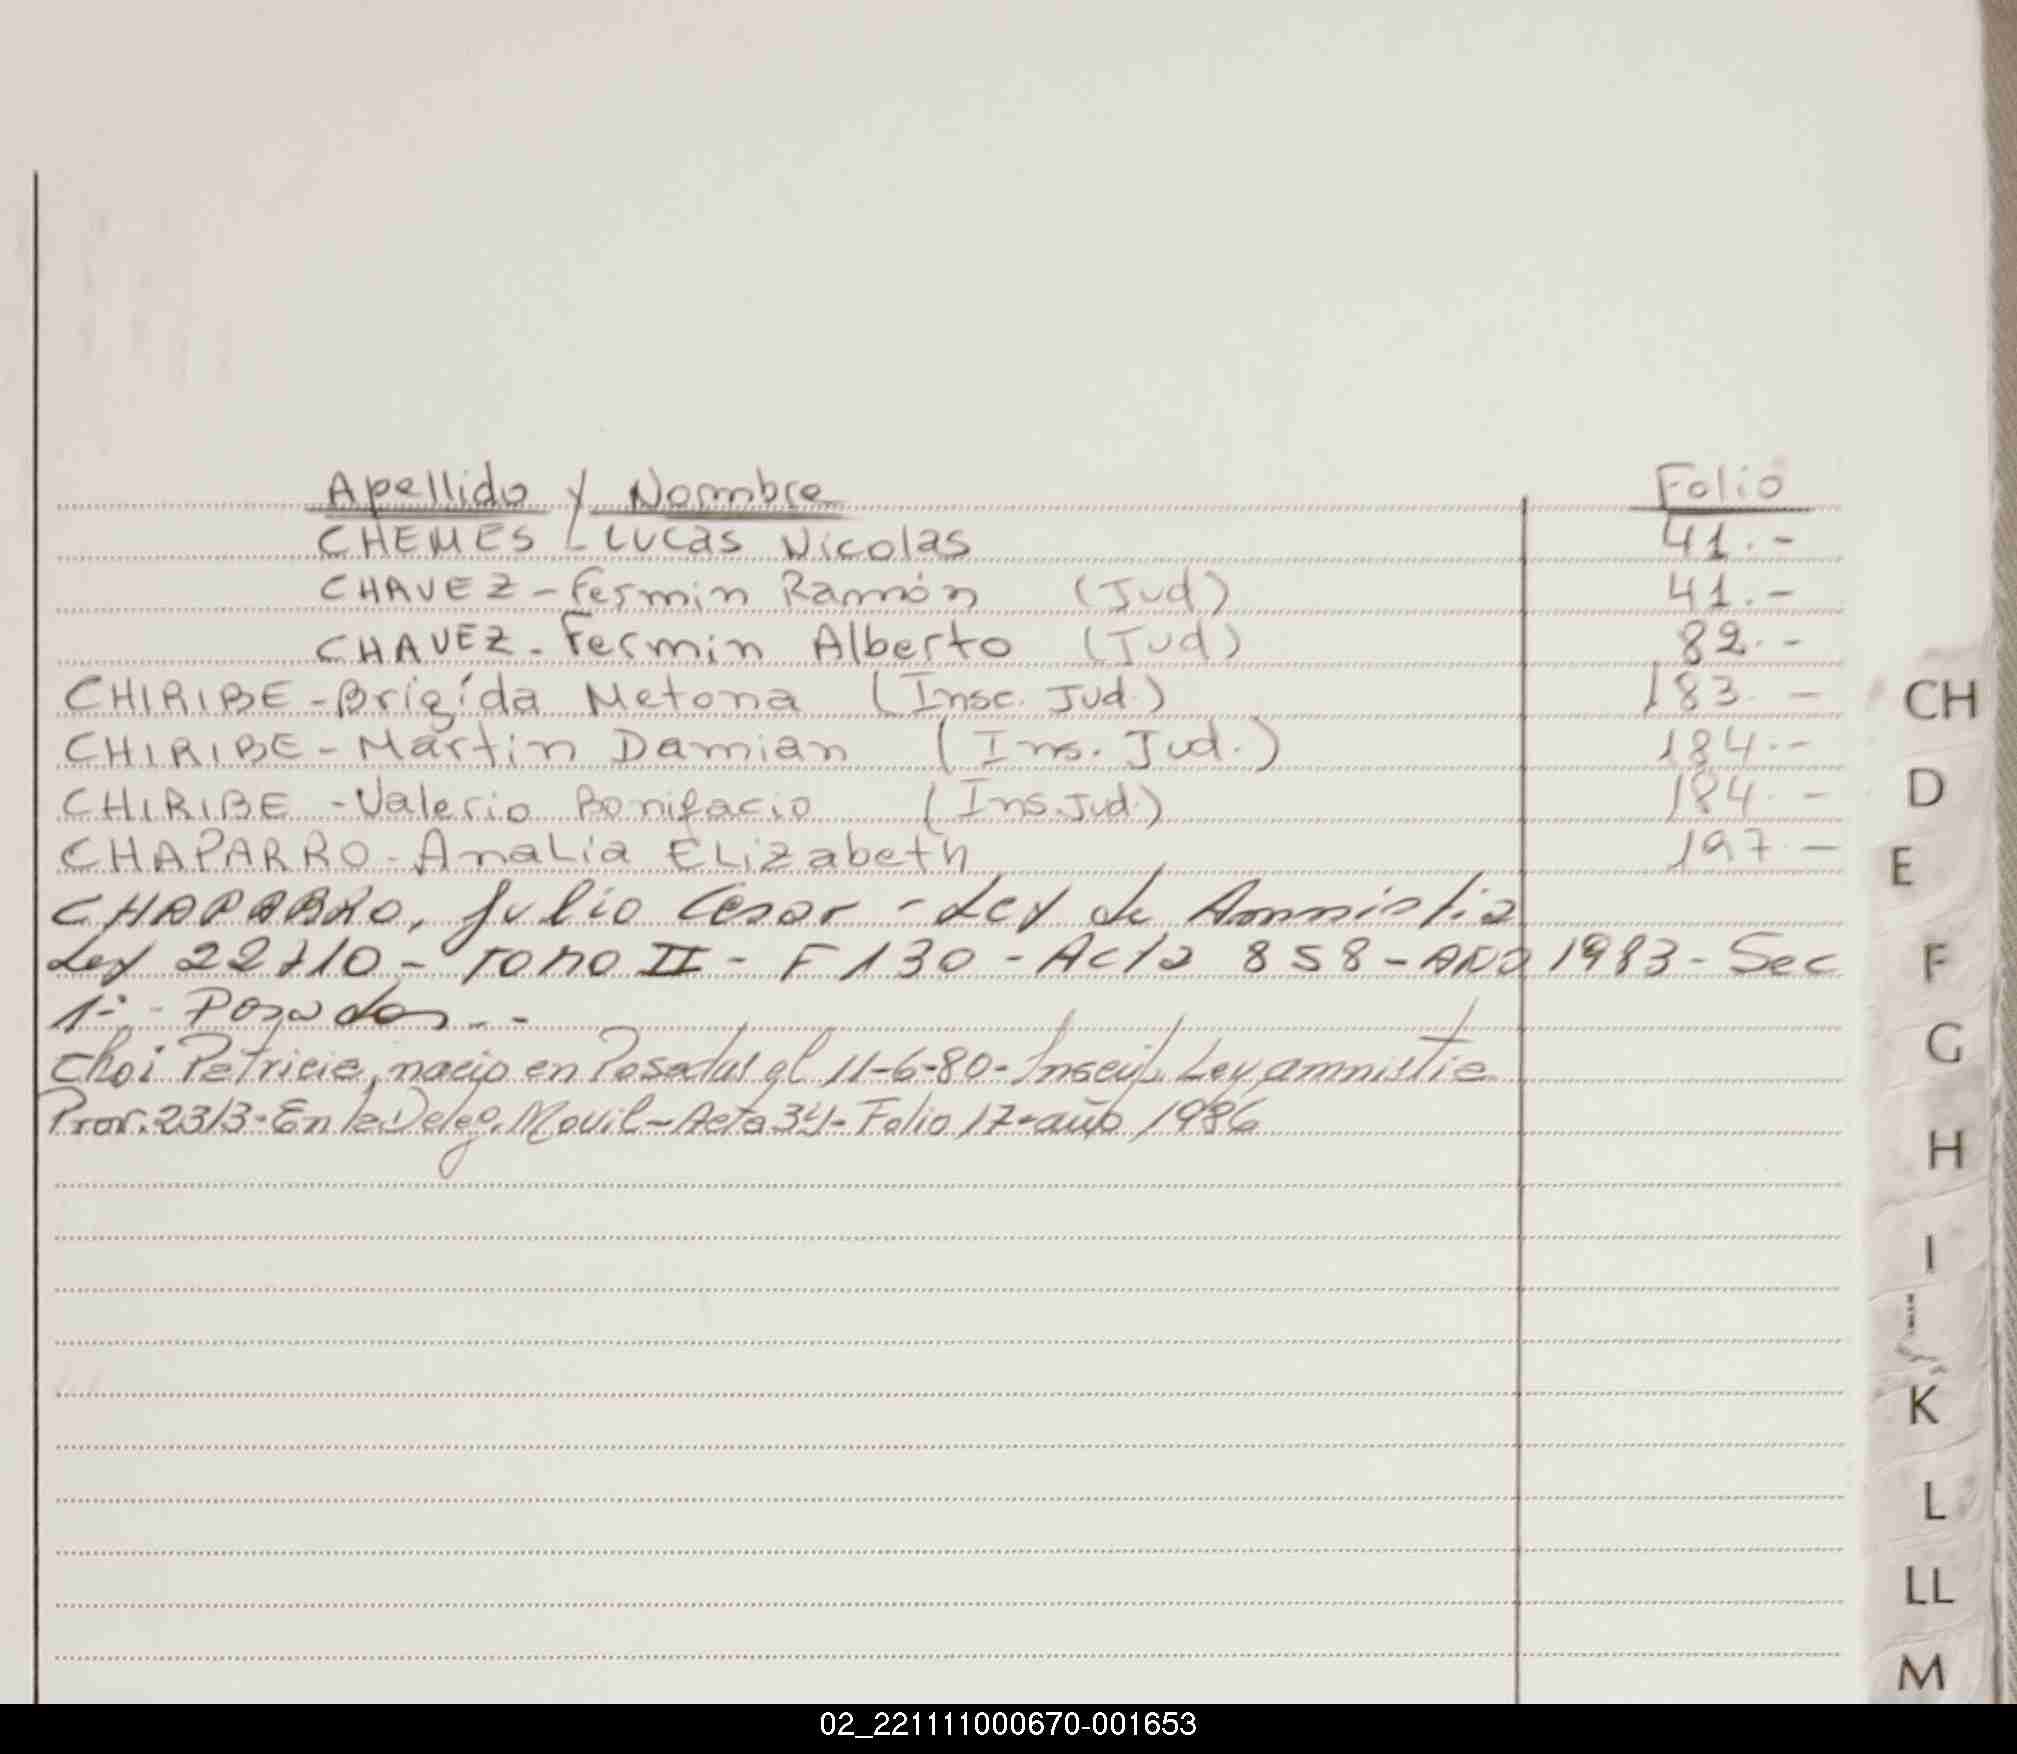 Apellido y Nombre Folio
CHEMES - Lucas Nicolas 41.-
CHAVEZ - Fermin Ramón (Jud) 41.-
CHAVEZ - Fermin Alberto (Jud) 82.-
CHIRIBE - Brigída Metona (Insc. Jud.) 183.-
CHIRIBE - Martin Damian (Ins. Jud.) 184.-
CHIRIBE - Valerio Bonifacio (Ins. Jud.) 184.-
CHAPARRO - Analia ELizabeth 197.-
CHAPARRO, Julio Cesar - Ley de Amnistia
Ley 22710 - Tomo II - F 130 - Acta 858 - Año 1983 - Sec
1º - Posadas --
Choi Patricia, nacio en Posadas el 11-6-80- Inscrip. Ley amnistia
Pror. 2313 - En la Deleg. Movil - Acta 34 - Folio 17 - año 1986
CH
D
E
F
G
H
I
K
L
LL
M
02_221111000670-001653